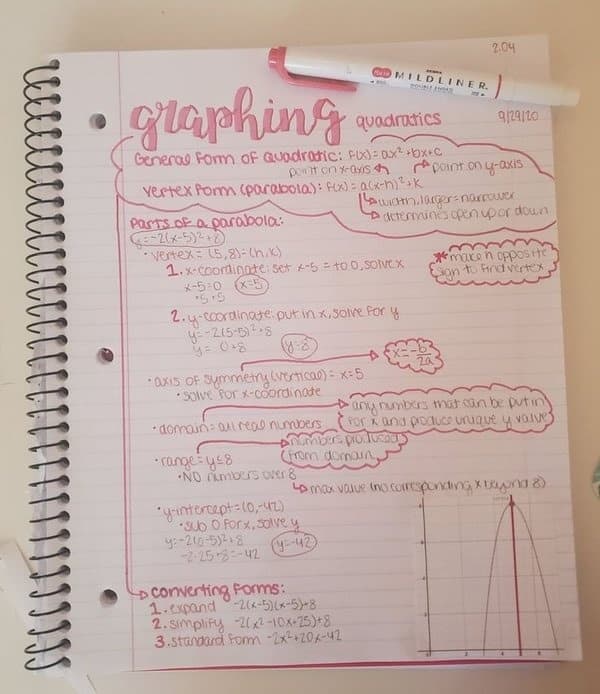 2.04
ZEBRA
MILDLINER.
DOUBLE ENDED
graphing quadratics
9/29/20
General Form of Quadratic: F(x)=ax²+bx+c
point on x-axis
point on y-axis
Vertex Form (parabola): F(x)=a(x-h)²+k
width, larger=narrower
determines open up or down
Parts of a parabola:
y=-2(x-5)²+8
• vertex=(5,8)=(h,k)
* make h opposite
sign to find vertex
1. x-coordinate: set x-5=to 0, solve x
x-5=0 x=5
+5 +5
2. y-coordinate: put in x, solve for y
y=-2(5-5)²+8
y= 0+8 y=8
x=-b/2a
• axis of symmetry (vertical)= x=5
• solve for x-coordinate
any numbers that can be put in
for x and produce unique y value
• domain=all real numbers
numbers produced
from domain
• range=y≤8
• NO numbers over 8
max value (no corresponding x beyond 8)
• y-intercept=(0,-42)
• sub 0 for x, solve y
y=-2(0-5)²+8 y=-42
-2·25+8=-42
converting forms:
1. expand -2(x-5)(x-5)+8
2. simplify -2(x²-10x+25)+8
3. standard form -2x²+20x-42